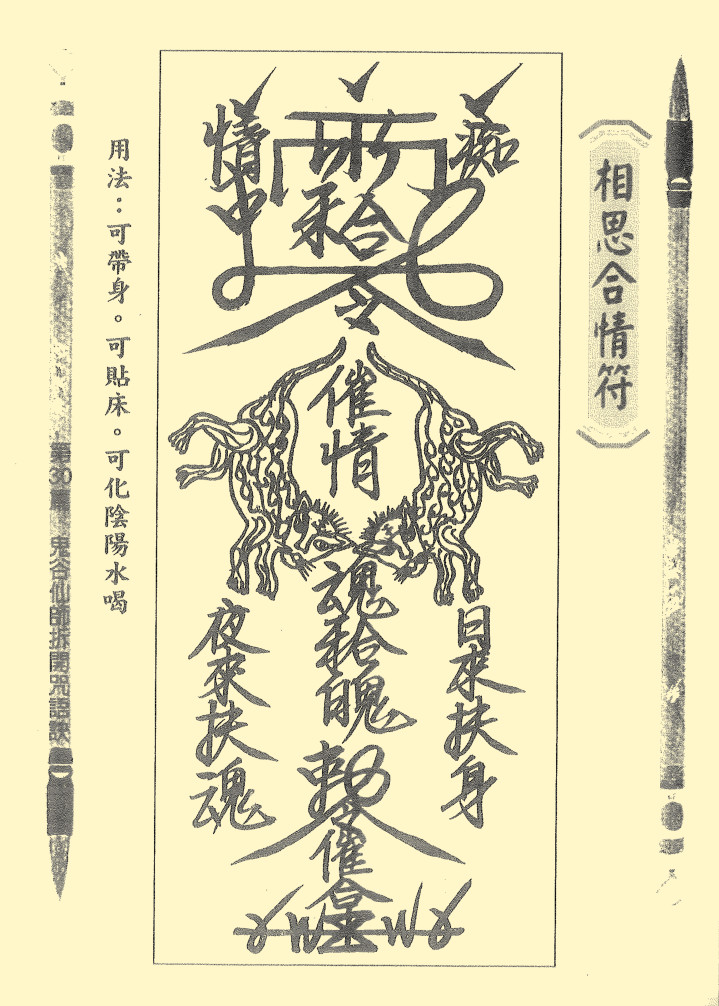 相思合情符
痴
情中
和合
令
催情
魂和合魄
日來扶身
夜來扶魂
勅令催合
用法：可帶身。可貼床。可化陰陽水喝
第30篇 鬼谷仙師拆開咒語訣